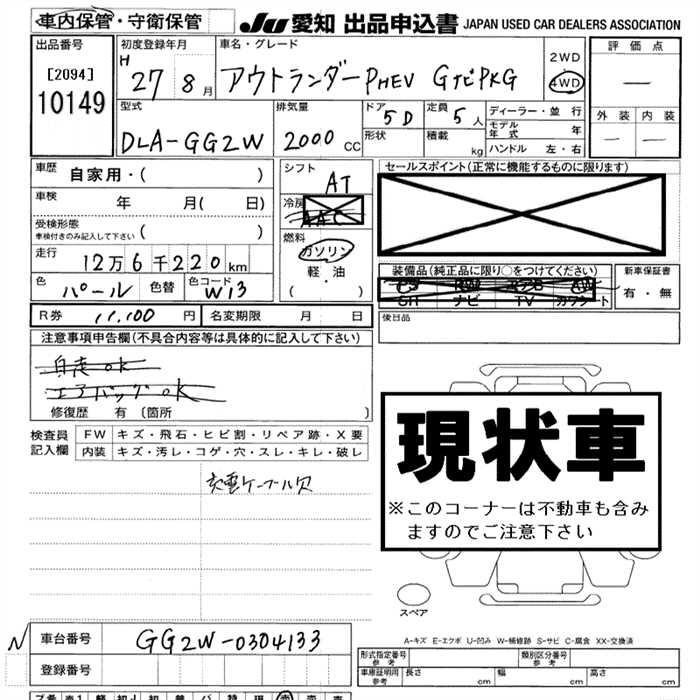 車内保管・守衛保管 JU 愛知 出品申込書 JAPAN USED CAR DEALERS ASSOCIATION
出品番号 初度登録年月 車名・グレード 2WD 評価点
[2094] H 27 8月 アウトランダーPHEV GナビPKG 4WD —
10149 型式 排気量 ドア 5D 定員 5人 ディーラー・並行 外装 内装
DLA-GG2W 2000 CC 形状 積載 kg モデル年式 年 — —
ハンドル 左・右
車歴 自家用・( ) シフト AT セールスポイント(正常に機能するものに限ります)
車検 年 月( 日) 冷房 AAC
受検形態 車検付きのみ記入して下さい ( ) 燃料 ガソリン
走行 12万6千220km 軽・油 装備品(純正品に限り○をつけてください) 新車保証書
色 パール 色替 色コード W13 ( ・ ) SR ナビ TV カワシート 有・無
R券 11,100円 名変期限 月 日 後日品
注意事項申告欄(不具合内容等は具体的に記入して下さい)
自走OK
エアバッグOK
修復歴 有 〔箇所 〕
検査員 FW キズ・飛石・ヒビ割・リペア跡・X要 現状車
記入欄 内装 キズ・汚レ・コゲ・穴・スレ・キレ・破レ
充電ケーブル欠 ※このコーナーは不動車も含み
ますのでご注意下さい
スペア
N 車台番号 GG2W-0304133 A-キズ E-エクボ U-凹み W-補修跡 S-サビ C-腐食 XX-交換済
登録番号 形式指定番号 参考 類別区分番号 参考
車庫証明用 参考 長さ cm 幅 cm 高さ cm